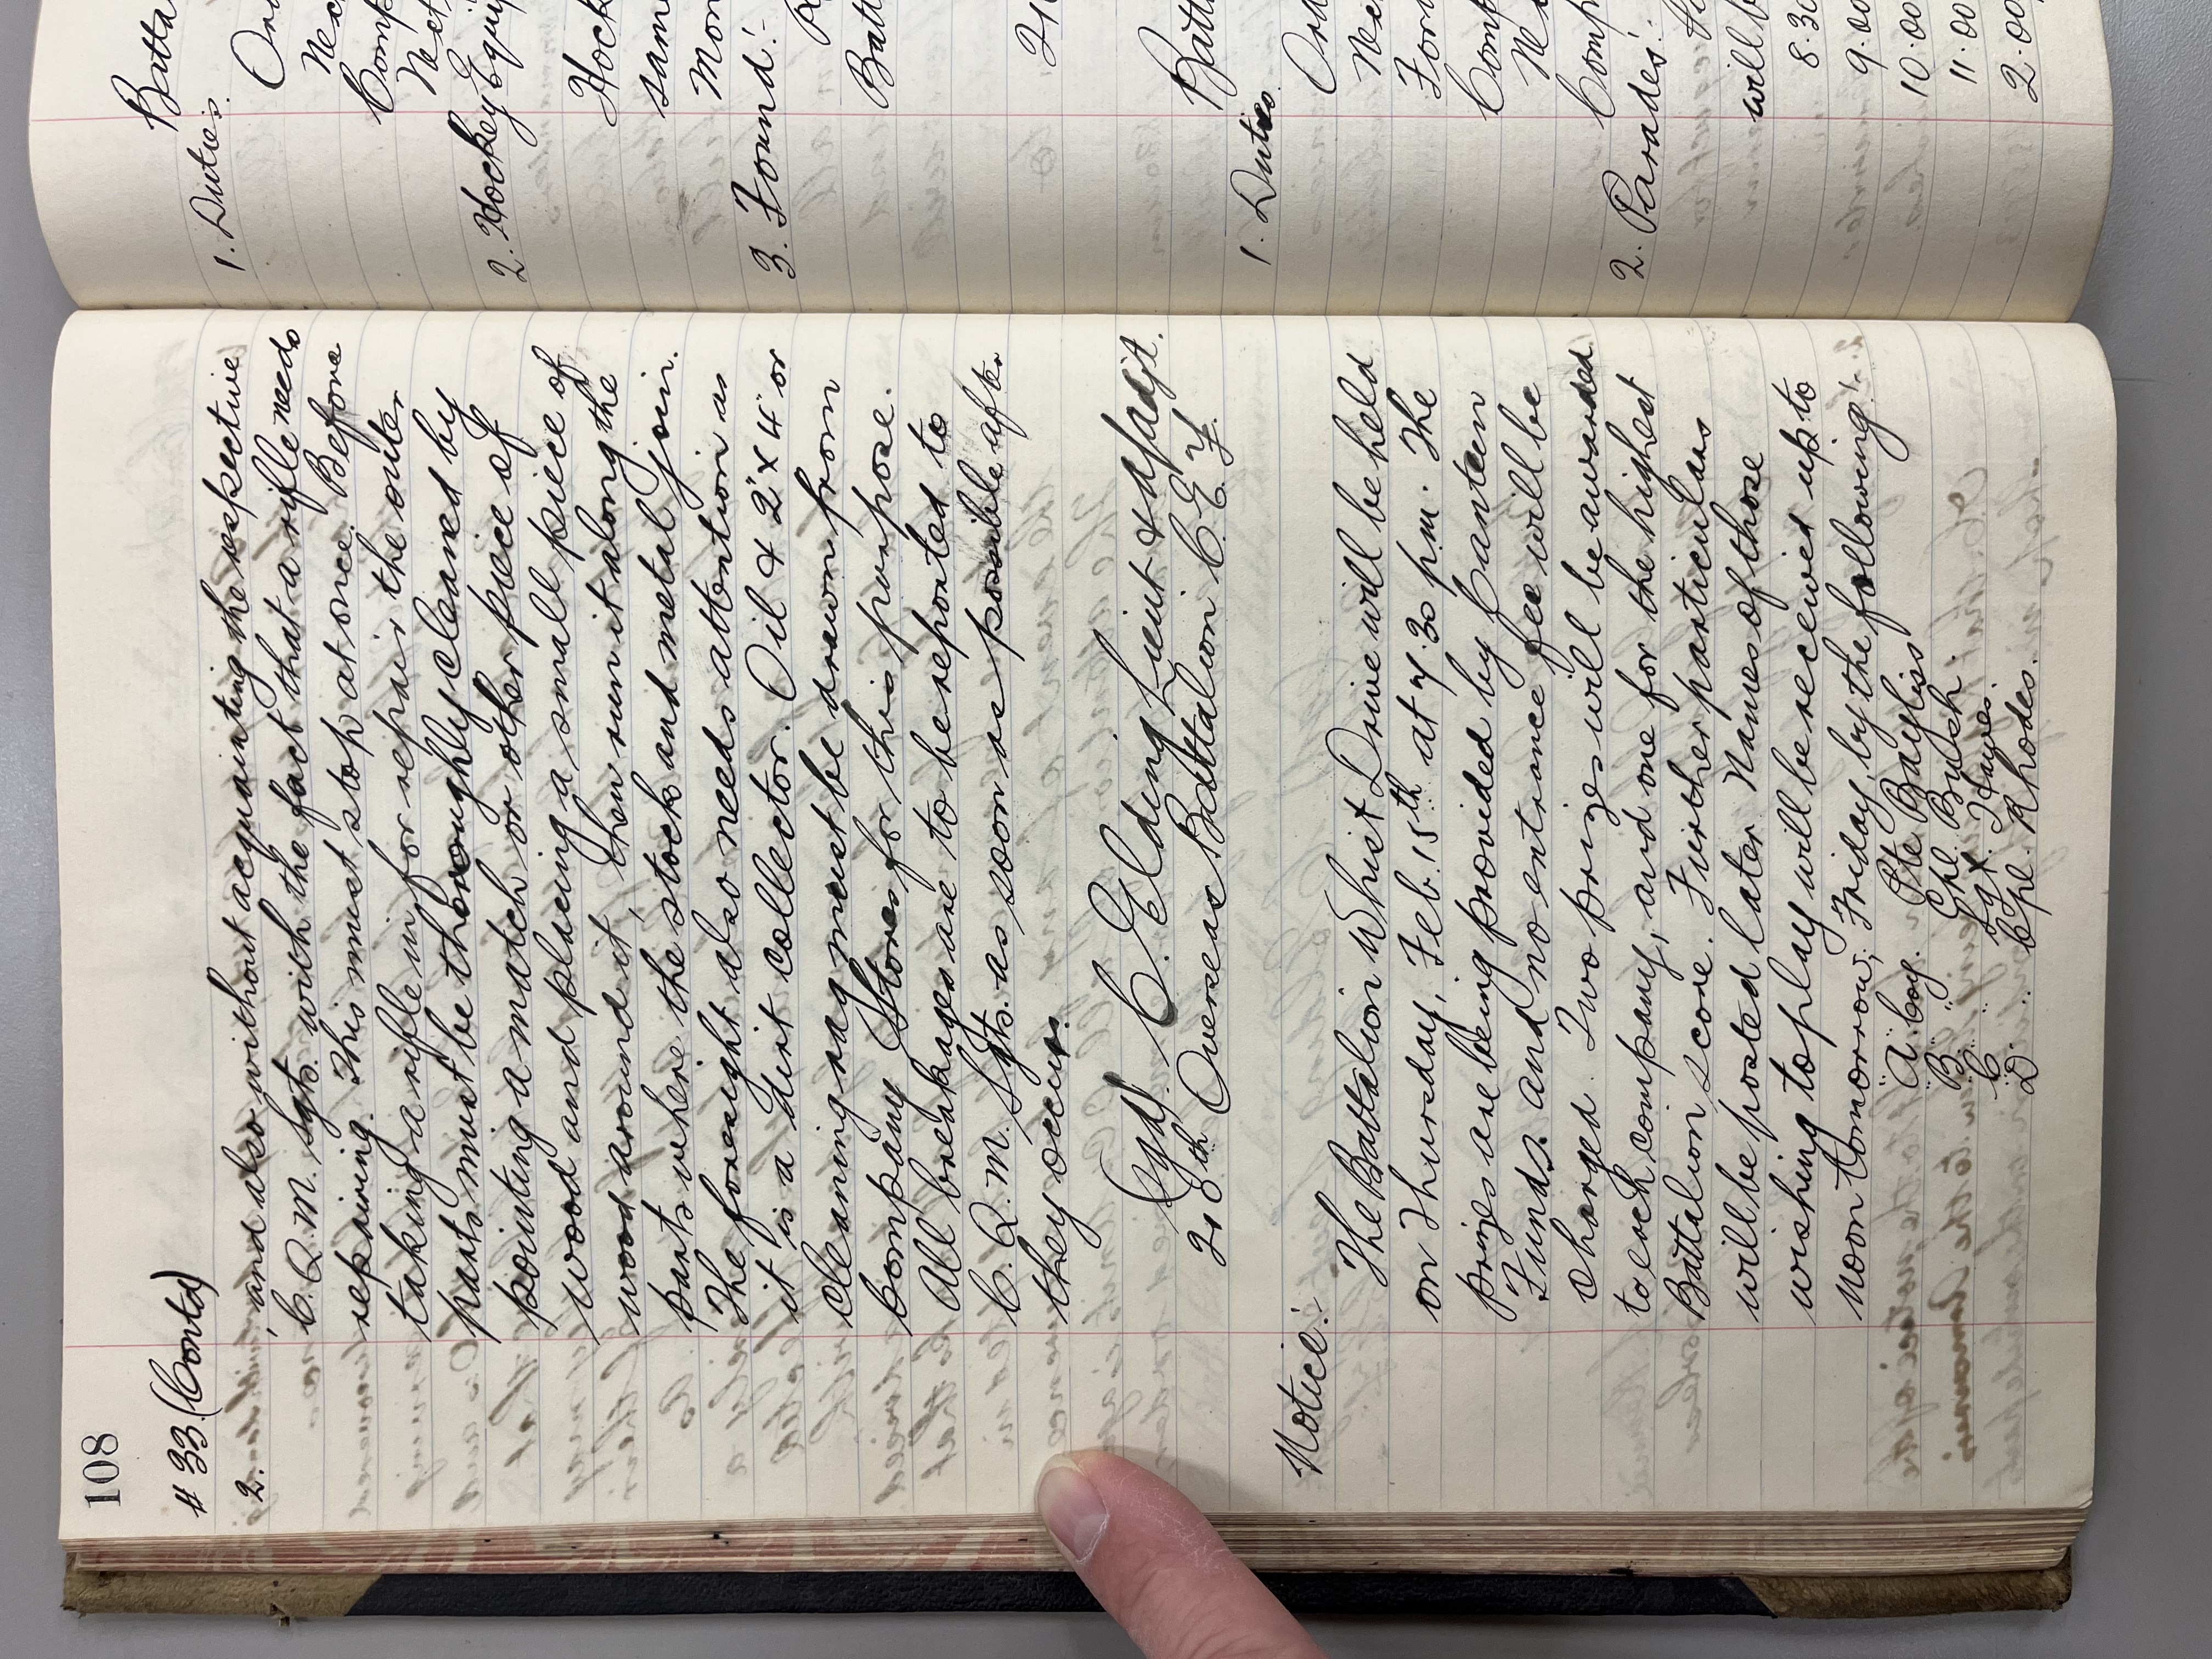 108
# 33 (Contd)
2. and also without acquainting the respective
C. Q. M. Sgts. with the fact that a rifle needs
repairing. This must stop at once. Before
taking a rifle in for repair the outer
parts must be thoroughly cleaned by
pointing a match or other piece of
wood and placing a small piece of
wood around it, then run it along the
parts where the stock and metal join.
The foresight also needs attention as
it is a dirt collector. Oil & 2" x 4" or
cleaning rag must be drawn from
Company Stores for this purpose.
All breakages are to be reported to
C. Q. M. Sgts. as soon as possible after
they occur.
(Sgd). C. Elding Lieut & a/Adjt.
218th Overseas Battalion C. E. F.
Notice:-
The Battalion Whist Drive will be held
on Thursday, Feb. 15th at 7.30 p.m. The
prizes are being provided by Canteen
Funds and no entrance fee will be
charged. Two prizes will be awarded
to each company, and one for the highest
Battalion score. Further particulars
will be posted later. Names of those
wishing to play will be received up to
noon tomorrow, Friday, by the following:-
"A" Coy. Pte Bayliss
"B" " Cpl. Bush.
"C" " Sgt. Hayes.
"D" " Cpl. Rhodes.
Batta
1. Duties.
Ord
Nex
Comp
Next
2. Hockey Equip
Hock
same
Mon
3. Found:-
Batt
218
Batt
1. Duties
Ord
Nex
For
Comp
Nex
Comp
2. Parades:-
will b
8.30
9.00
10.00
11.00
2.00